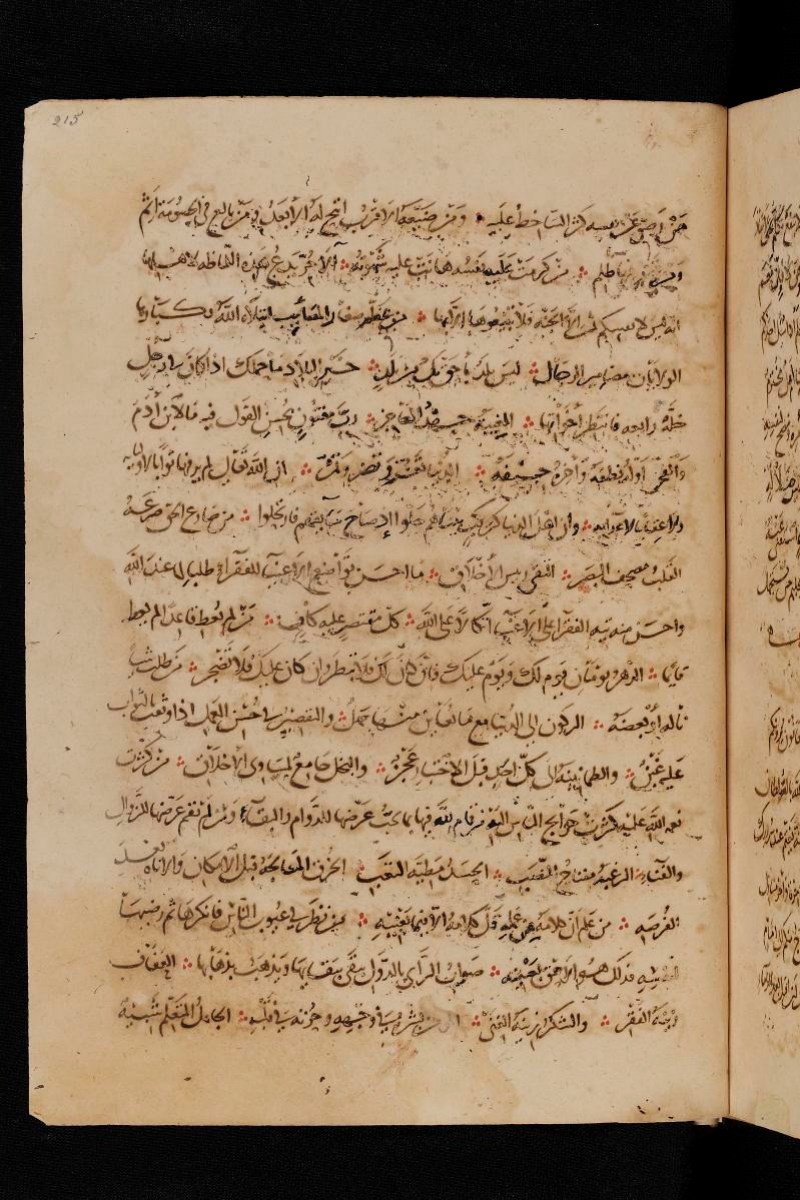 215
من رضي عن نفسه كثر الساخط عليه ومن ضيعه الاقرب اتيح له الابعد ومن بالغ في الخصومة اثم
ومن قصر فيها ظلم من كرمت عليه نفسه هانت عليه شهوته الا حر يدع هذه اللماظة لاهلها
انه ليس لانفسكم ثمن الا الجنة فلا تبيعوها الا بها من عظم صغار المصائب ابتلاه الله بكبارها
الولايات مضامير الرجال ليس بلد باحق بك من بلد خير البلاد ما حملك اذا كان في رجل
خلة رايعة فانتظر اخواتها الغيبة جهد العاجز رب مفتون بحسن القول فيه ما لابن آدم
والفخر اوله نطفة وآخره جيفة الدنيا تغر وتضر وتمر ان الله تعالى لم يرضها ثوابا لاوليائه
ولا عقابا لاعدائه وان اهل الدنيا كركب بيناهم حلوا اذ صاح سائقهم فارتحلوا من صارع الحق صرعه
القلب مصحف البصر التقى رئيس الاخلاق ما احسن تواضع الاغنياء للفقراء طلبا لما عند الله
واحسن منه تيه الفقراء على الاغنياء اتكالا على الله كل مقتصر عليه كاف من لم يعط قاعدا لم يعط
قائما الدهر يومان يوم لك ويوم عليك فان كان لك فلا تبطر وان كان عليك فلا تضجر من طلب شيا
ناله او بعضه الركون الى الدنيا مع ما تعاين منها جهل والتقصير في حسن العمل اذا وثقت بالثواب
عليه غبن والطمانينة الى كل احد قبل الاختبار عجز والبخل جامع لمساوي الاخلاق من كثرت
نعم الله عليه كثرت حوايج الناس اليه فمن قام لله فيها بما يجب عرضها للدوام والبقاء ومن لم يقم عرضها للزوال
والفناء الرغبة مفتاح النصب الحسد مطية التعب الخرق المعاجلة قبل الامكان والاناة بعد
الفرصة من علم ان كلامه من عمله قل كلامه الا فيما يعنيه من نظر في عيوب الناس فانكرها ثم رضيها
لنفسه فذلك هو الاحمق بعينه صواب الراي بالدول يبقى ببقائها ويذهب بذهابها العفاف
زينة الفقر والشكر زينة الغنى المؤمن بشره في وجهه وحزنه في قلبه الجاهل المتعلم شبيه